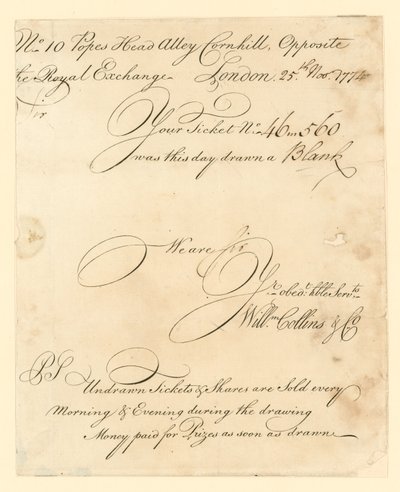 No. 10 Popes Head Alley Cornhill, Opposite
the Royal Exchange London. 25.th Nov. 1774
Sir
Your Ticket No. 46m560
was this day drawn a Blank
We are Sir
Yr. obedt. hble Servts.
Willm. Collins & Co.
PS Undrawn Tickets & Shares are Sold every
Morning & Evening during the drawing
Money paid for Prizes as soon as drawn